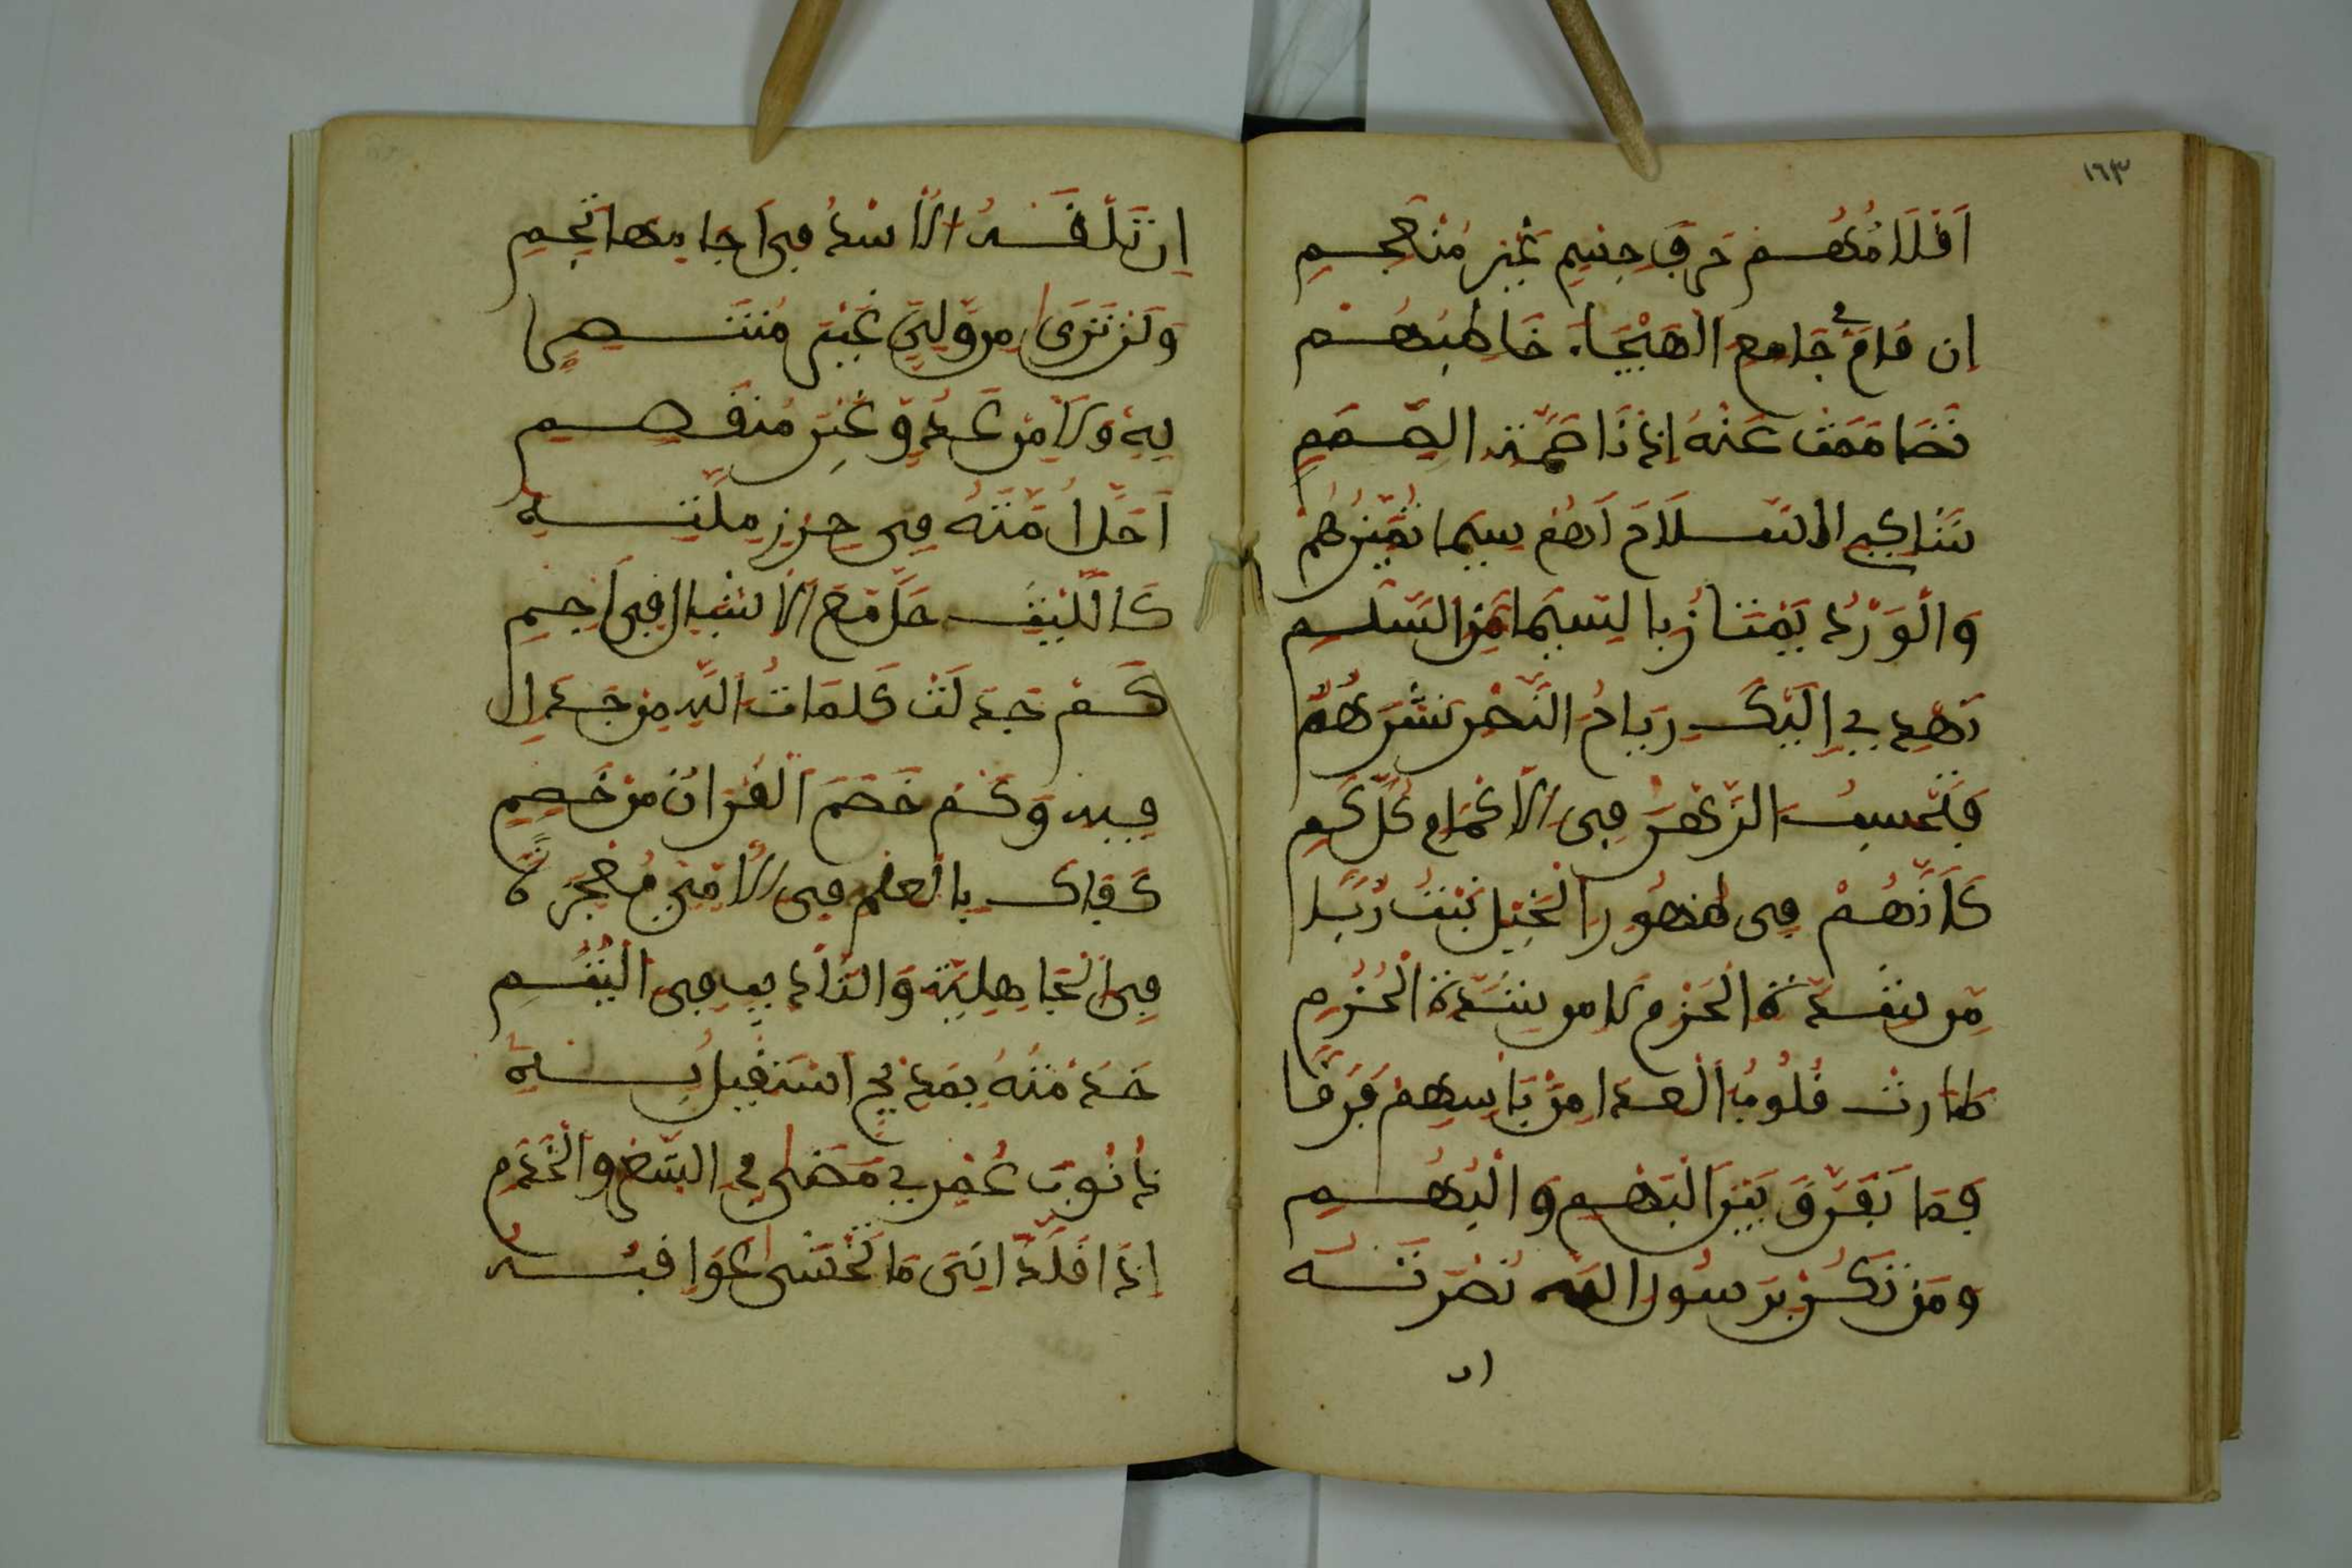 ١٦٣
أَقْلَامُهُمْ حَرْفَ جِسْمٍ غَيْرَ مُنْعَجِمِ
إن قَامَ في جَامِعِ الْهَيْجَاءِ خَاطِبُهُمْ
تَصَامَمَتْ عَنْهُ إذنا صِمَّةِ الصِّمَمِ
شَاكِي السِّلَاحِ لَهُمْ سِيمَا تُمَيِّزُهُمْ
وَالْوَرْدُ يَمْتَازُ بِالسِّيمَا مِنَ السَّلَمِ
تُهْدِي إِلَيْكَ رِيَاحُ النَّصْرِ نَشْرَهُمُ
فَتَحْسِبُ الزَّهْرَ فِي الْأَكْمَامِ كُلَّ كَمِ
كَأَنَّهُمْ فِي ظُهُورِ الْخَيْلِ نَبْتُ رُبًا
مِن شِدَّةِ الْحَزْمِ لَا مِن شَدَّةِ الْحُزُمِ
طَارَتْ قُلُوبُ الْعِدَا مِنْ بَأْسِهِمْ فَرَقًا
فَمَا تُفَرِّقُ بَيْنَ الْبَهْمِ وَالْبُهُمِ
وَمَن تَكُنْ بِرَسُولِ اللَّهِ نُصْرَتُهُ
ان
إِن تَلْقَهُ الْأُسْدُ فِي آجَامِهَا تَجِمِ
وَلَن تَرَى مِن وَلِيٍّ غَيْرِ مُنْتَصِرٍ
بِهِ وَلَا مِنْ عَدُوٍّ غَيْرِ مُنْقَصِمِ
أَحَلَّ أُمَّتَهُ فِي حِرْزِ مِلَّتِهِ
كَاللَّيْثِ حَلَّ مَعَ الْأَشْبَالِ فِي أَجَمِ
كَمْ جَدَلَتْ كَلِمَاتُ اللَّهِ مِنْ جَدِلٍ
فِيهِ وَكَمْ خَصَمَ الْقُرْآنُ مِنْ خَصِمِ
كَفَاكَ بِالْعِلْمِ فِي الْأُمِّيِّ مُعْجِزَةً
فِي الْجَاهِلِيَّةِ وَالتَّأْدِيبِ فِي الْيُتُمِ
خَدَمْتُهُ بِمَدِيحٍ أَسْتَقِيلُ بِهِ
ذُنُوبَ عُمْرٍ مَضَى فِي الشِّعْرِ وَالْخِدَمِ
إِذْ قَلَّدَانِيَ مَا تُخْشَى عَوَاقِبُهُ